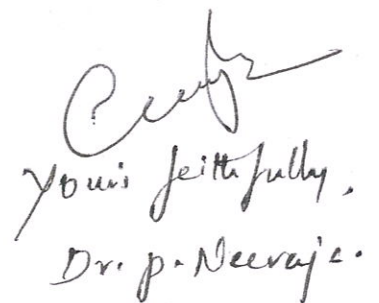 Yours faithfully,
Dr. P. Neeraja.